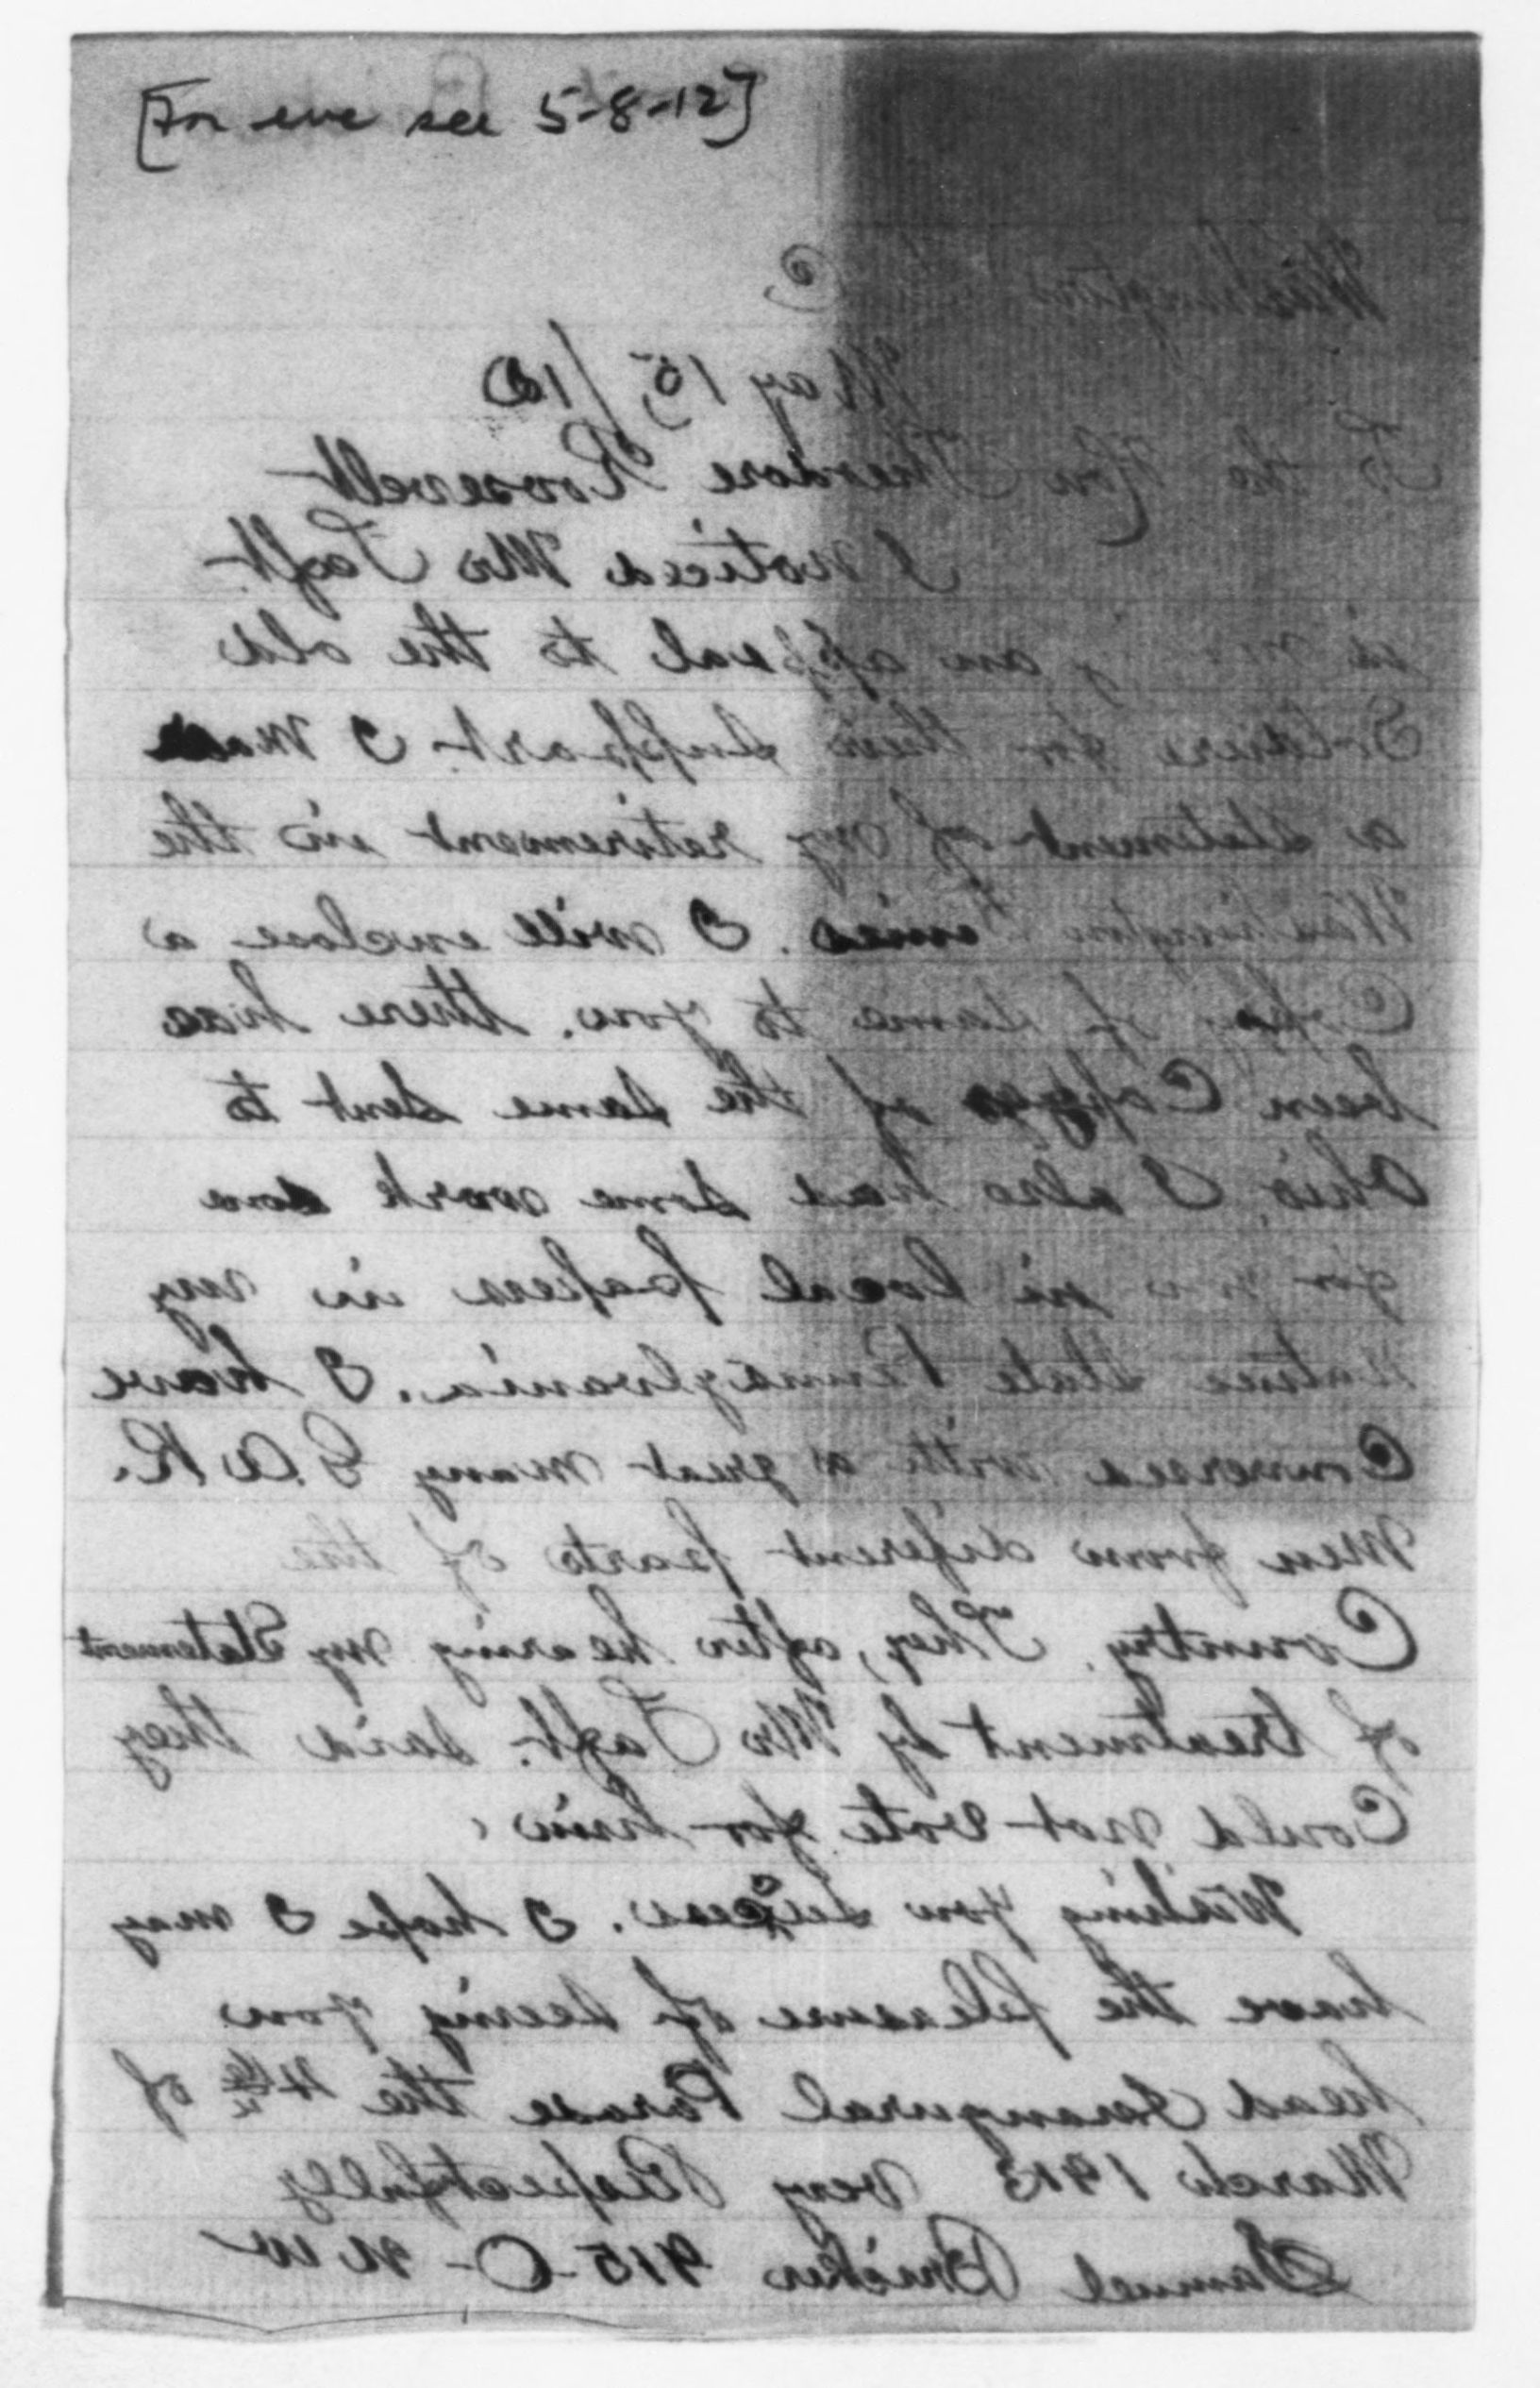 [For enc see 5-8-12]
Washington D C
May 15,/12
To the Hon Theodore Roosevelt
I noticed Mr Taft
is making an appeal to the old
Soldiers for their support. I made
a statement of my retirement in the
Washington Times. I will enclose a
Copy of same to you. there has
been Copys of the same sent to
Ohio, I also had some work done
for you in local papers in my
native State Pennsylvania. I have
Conversed with a great many G.A.R.
Men from diferent parts of the
Country. They, after hearing my Statement
of treatment by Mr Taft. said they
Could not vote for him.
Wishing you Success. I hope I may
have the pleasure of seeing you
head Inaugural Parade the 4th of
March 1913 very Respectfully
Samuel Bricker 915-O-NW